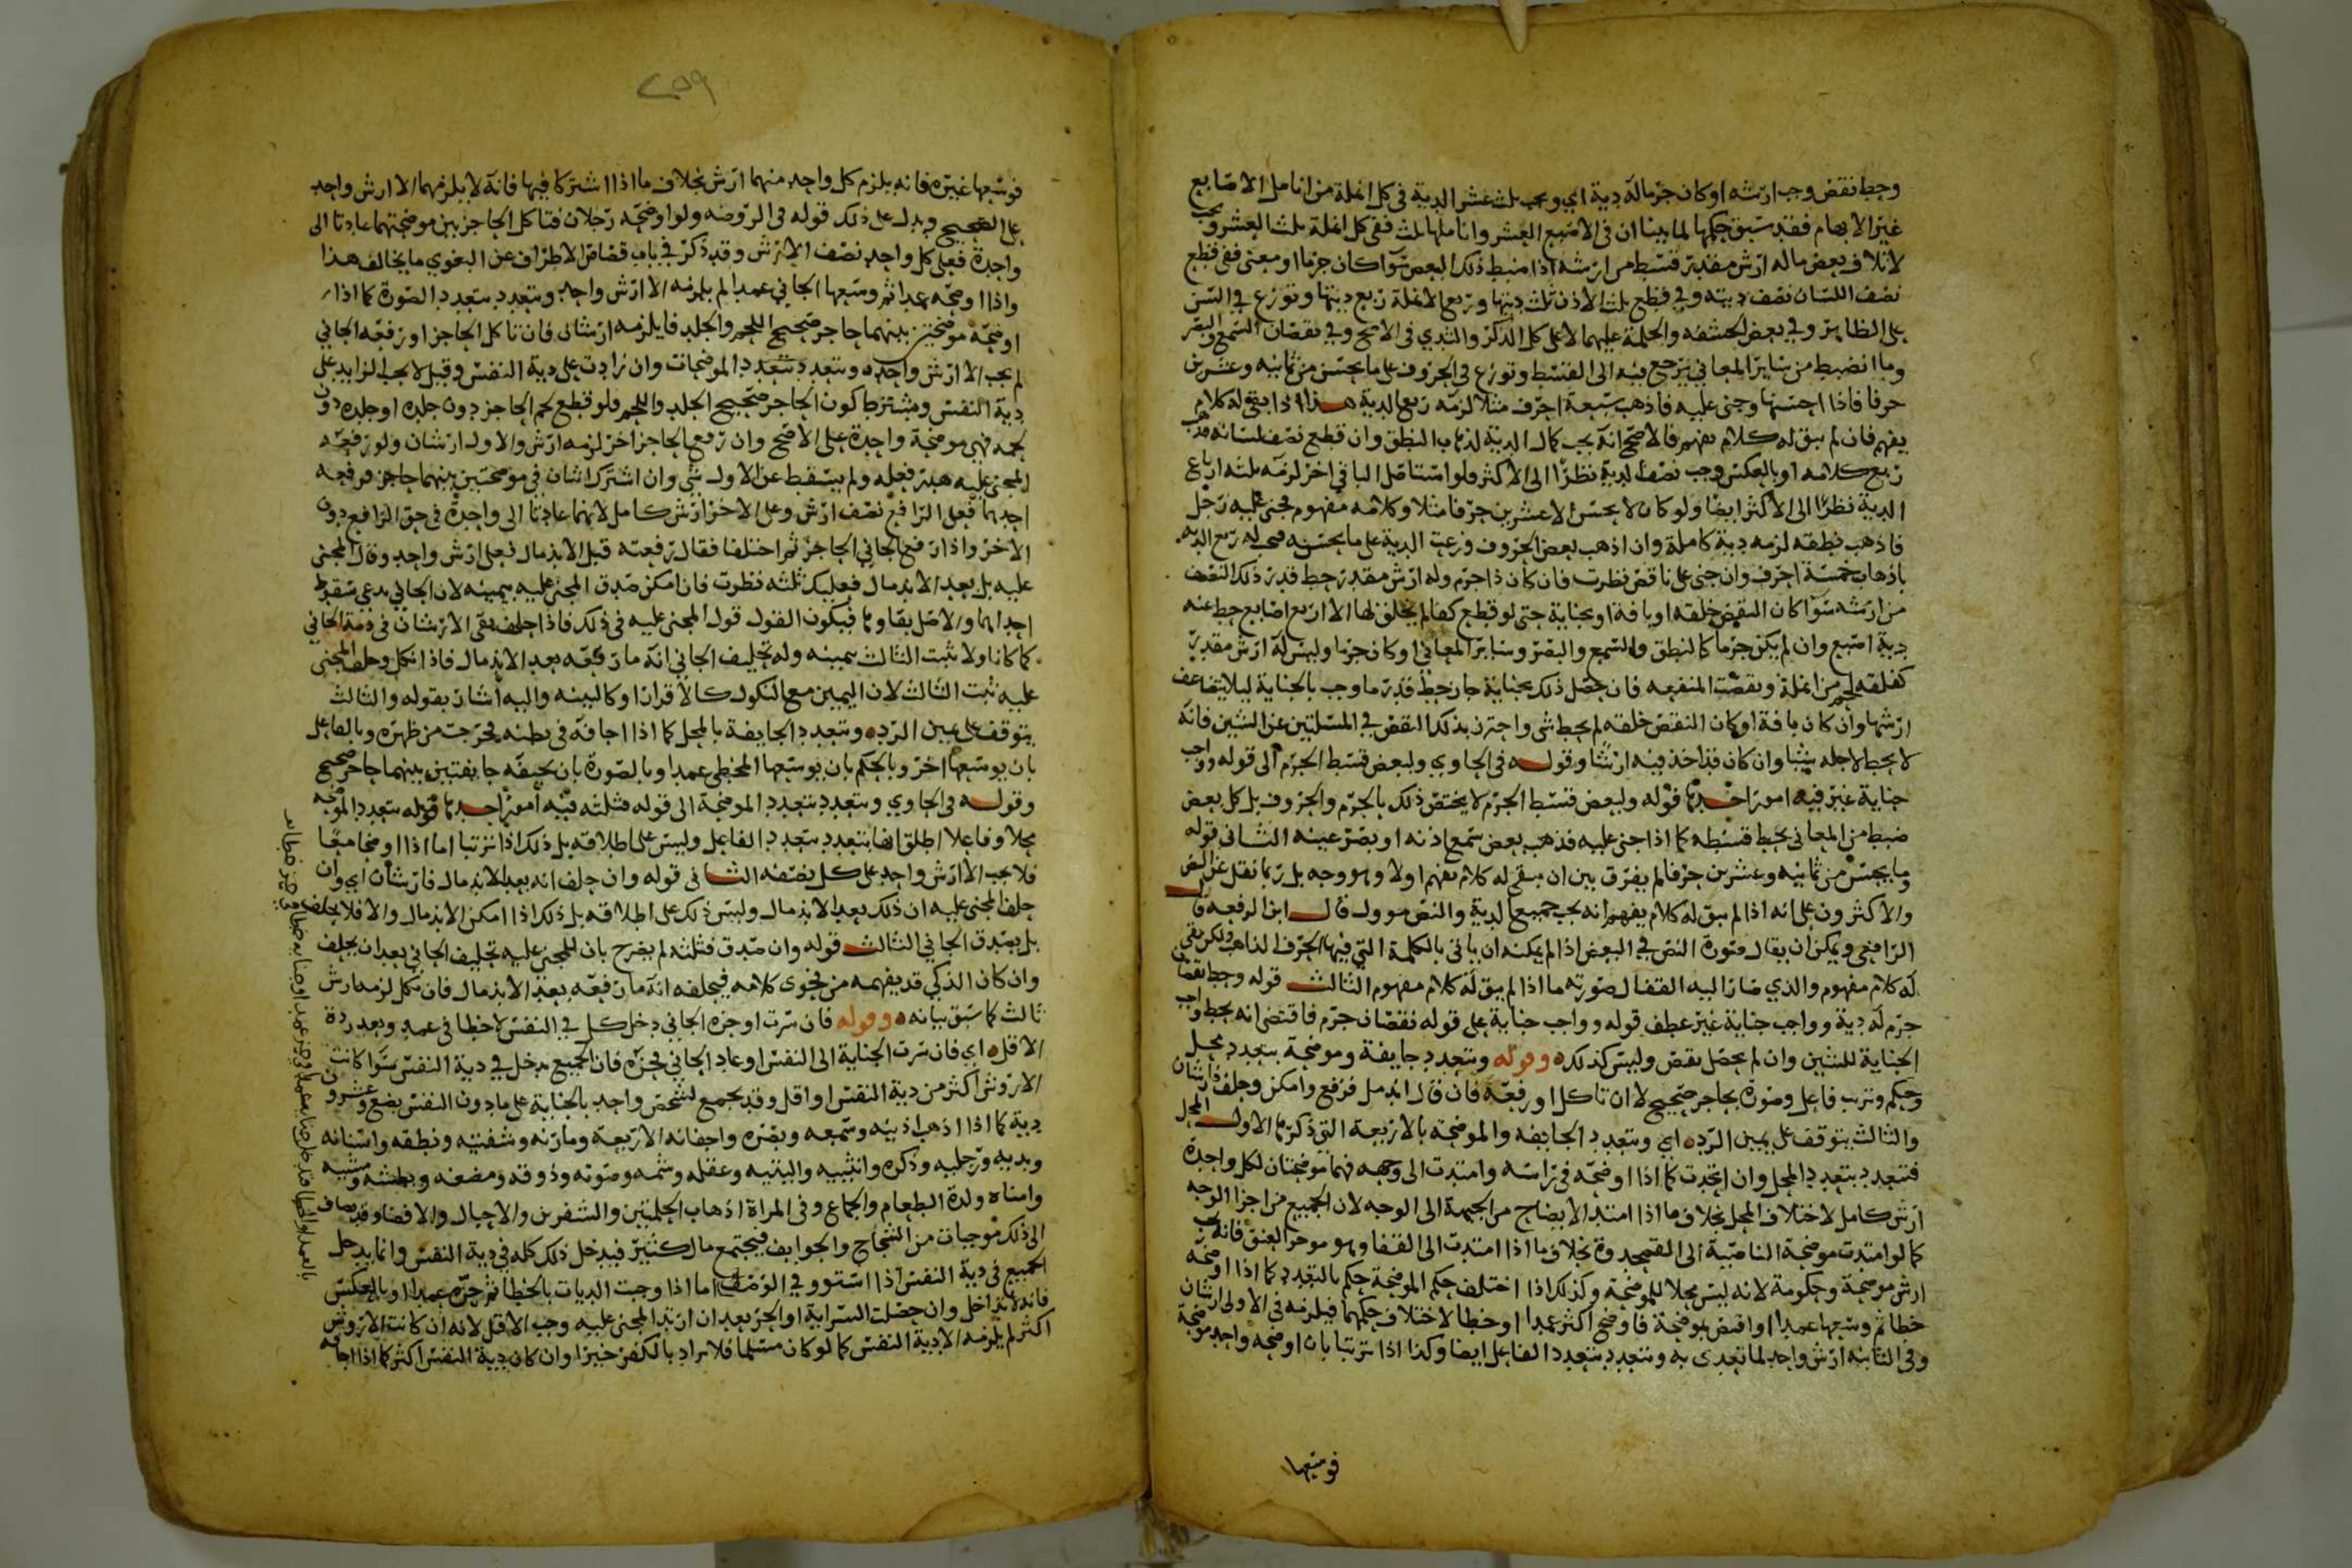 وحط نقص وجب ارشه او كان جرماله دية اي ويجب ثلث عشر الدية في كل انملة من انامل الاصابع
غير الابهام فقد سبق حكمها لما بينا ان في الاصبع العشر واناملها ثلث ففي كل انملة ثلث العشر ويجب
لاتلاف بعض ماله ارش مقدر قسط من ارشه اذا ضبط ذلك البعض سوآ كان جرما او معنى ففي قطع
نصف اللسان نصف ديته وفي قطع ثلث الاذن ثلث ديتها وربع الانملة ربع ديتها وتوزع في السن
على الظاهر وفي بعض الحشفه والحلمة عليهما لا على كل الذكر والثدي في الاصح وفي نقصان السمع والبصر
وما انضبط من سائر المعاني يرجع فيه الى القسط وتوزع في الحروف على ما يحسن من ثمانيه وعشرين
حرفا فاذا احسنها وجنى عليه فاذهب سبعة احرف مثلا لزمه ربع الدية هذا اذا بقي له كلام
يفهم فان لم يبق له كلام يفهم فالاصح انه يجب كمال الدية لذهاب النطق وان قطع نصف لسانه فذهب
ربع كلامه او بالعكس وجب نصف الدية نظرا الى الاكثر ولو استاصل الباقي اخر لزمه ثلثه ارباع
الدية نظرا الى الاكثر ايضا ولو كان لا يحسن الا عشرين حرفا مثلا وكلامه مفهوم فجنى عليه رجل
فاذهب نطقه لزمه دية كاملة وان اذهب بعض الحروف وزعت الدية على ما يحسنه فيجب له ربع الديه
باذهاب خمسة احرف وان جنى على ناقص نظرت فان كان ذا جرم وله ارش مقدر حط قدر ذلك النقص
من ارشه سوآ كان النقص خلقه او بافة او بجناية حتى لو قطع كفا لم يخلق لها الا اربع اصابع حط عنه
دية اصبع وان لم يكن جرما كالنطق والسمع والبصر وسائر المعاني او كان جرما وليس له ارش مقدر
كفلقه لحم من انملة ونقصت المنفعه فان حصل ذلك بجناية جان حط قدر ما وجب بالجناية ليلا يتضاعف
ارشها وان كان بافة او كان النقص خلقه لم يحط شي واحترز بذكر النقص في المسلتين عن الشين فانه
لا يحط لاجله شيا وان كان قد اخذ فيه ارشا وقوله في الحاوي ولبعض قسط الجرم الى قوله وواجب
جناية غير فيه امور احدها قوله ولبعض قسط الجرم لا يختص ذلك بالجرم والحروف بل كل بعض
ضبط من المعاني يحط قسطه كما اذا جنى عليه فذهب بعض سمع اذنه او بصر عينه الثاني قوله
وما يحسن من ثمانيه وعشرين حرفا لم يفرق بين ان يبقى له كلام يفهم اولا وهو وجه بل ربما نقل عن النص
والاكثرون على انه اذا لم يبق له كلام يفهم انه يجب جميع الدية والنص موول قال ابن الرفعه قال
الرافعي ويمكن ان يقال صورة النص في البعض اذا لم يمكنه ان ياتي بالكلمة التي فيها الحرف الذاهب ولكن بقي
له كلام مفهوم والذي صار اليه القفال صورته ما اذا لم يبق له كلام مفهوم الثالث قوله وحط نقصان
جرم له دية وواجب جناية غير عطف قوله وواجب جناية على قوله نقصان جرم فاقتضى انه يحط واجب
الجناية للشين وان لم يحصل نقص وليس كذلك وقوله وتتعدد جايفة وموضحة بتعدد محل
وحكم وترتب فاعل وصورة بحاجز صحيح لا ان تاكل او رفعه فان قال اندمل فرفع وامكن وحلف فارشان
والثالث يتوقف على يمين الرد اي وتتعدد الجايفه والموضحة بالاربعة التي ذكرها الاول المحل
فتتعدد بتعدد المحل وان اتحدت كما اذا اوضحه في راسه وامتدت الى وجهه فهما موضحتان لكل واحدة
ارش كامل لاختلاف المحل بخلاف ما اذا امتد الايضاح من الجبهة الى الوجه لان الجميع من اجزا الوجه
كما لو امتدت موضحة الناصية الى القمحدوة بخلاف ما اذا امتدت الى القفا وهو موخر العنق فانه يجب
ارش موضحة وحكومة لانه ليس محلا للموضحة وكذلك اذا اختلف حكم الموضحة حكم بالتعدد كما اذا اوضحه
خطا ثم وسعها عمدا او اقتص بموضحة فاوضح اكثر عمدا او خطا لاختلاف حكمهما فيلزمه في الاولى ارشان
وفي الثانيه ارش واحد لما تعدى به وتتعدد بتعدد الفاعل ايضا وكذا اذا ترتبا بان اوضحه واحد موضحة
فوسعها
٢٥٩
فوسعها غيره فانه يلزم كل واحد منهما ارش بخلاف ما اذا اشتركا فيها فانه لا يلزمهما الا ارش واحد
على الصحيح ويدل على ذلك قوله في الروضه ولو اوضحه رجلان فتاكل الحاجز بين موضحتهما عادتا الى
واحدة فعلى كل واحد نصف الارش وقد ذكر في باب قصاص الاطراف عن البغوي ما يخالف هذا
واذا اوضحه عمدا ثم وسعها الجاني عمدا لم يلزمه الا ارش واحد وتتعدد بتعدد الصورة كما اذا
اوضحه موضحتين بينهما حاجز صحيح اللحم والجلد فايلزمه ارشان فان تاكل الحاجز او رفعه الجاني
لم يجب الا ارش واحد وتتعدد بتعدد الموضحات وان زادت على دية النفس وقيل لا يجب الزايد على
دية النفس ويشترط كون الحاجز صحيح الجلد واللحم ولو قطع لحم الحاجز دون جلده او جلده دون
لحمه فهي موضحة واحدة على الاصح وان رفع الحاجز اخر لزمه ارش والاول ارشان ولو رفعه
المجني عليه هدر فعله ولم يسقط عن الاول شي وان اشترك اثنان في موضحتين بينهما حاجز فرفعه
احدهما فعلى الرافع نصف ارش وعلى الاخر ارش كامل لانهما عادتا الى واحدة في حق الرافع دون
الاخر واذا رفع الجاني الحاجز ثم اختلفا فقال رفعته قبل الاندمال فعلي ارش واحد وقال المجني
عليه بل بعد الاندمال فعليك ثلثه نظرت فان امكن صدق المجني عليه بيمينه لان الجاني يدعي سقوط
احداهما والاصل بقاوها فيكون القول قول المجني عليه في ذلك فاذا حلف بقي الارشان في ذمة الجاني
كما كانا ولا يثبت الثالث بيمينه وله تحليف الجاني انه ما رفعه بعد الاندمال فاذا نكل وحلف المجني
عليه ثبت الثالث لان اليمين مع النكول كالاقرار او كالبينه واليه اشار بقوله والثالث
يتوقف على يمين الرد وتتعدد الجايفة بالمحل كما اذا اجافه في بطنه فخرجت من ظهره وبالفاعل
بان يوسعها اخر وبالحكم بان يوسعها المخطي عمدا وبالصورة بان يجيفه جايفتين بينهما حاجز صحيح
وقوله في الحاوي وتتعدد بتعدد الموضحة الى قوله فثلثه فيه امور احدها قوله بتعدد الموضحه
محلا وفاعلا اطلق انها تتعدد بتعدد الفاعل وليس على اطلاقه بل ذلك اذا ترتبا اما اذا اوضحا معا
فلا يجب الا ارش واحد على كل نصفه الثاني قوله وان حلف انه بعد الاندمال فارشان اي وان
حلف المجني عليه ان ذلك بعد الاندمال وليس ذلك على اطلاقه بل ذلك اذا امكن الاندمال والا فلا يحلف
بل يصدق الجاني الثالث قوله وان صدق فثلثه لم يصرح بان للمجني عليه تحليف الجاني بعد ان يحلف
وان كان الذكي قد يفهمه من فحوى كلامه فيحلفه انه ما رفعه بعد الاندمال فان نكل لزمه ارش
ثالث كما سبق بيانه وقوله فان سرت او حزه الجاني دخل كل في النفس لا خطا في عمد وبعد ردة
الاقل اي فان سرت الجناية الى النفس او عاد الجاني فحزه فان الجميع يدخل في دية النفس سوا كانت
الاروش اكثر من دية النفس او اقل وقد يجمع لشخص واحد بالجناية على ما دون النفس بضع وعشرون
دية كما اذا اذهب اذنيه وسمعه وبصره واجفانه الاربعة ومارنه وشفتيه ونطقه واسنانه
ويديه ورجليه وذكره وانثييه واليتيه وعقله وشمه وصوته وذوقه ومضغه وبطشه ومشيه
وامناه ولذة الطعام والجماع وفي المراة اذهاب الحلمتين والشفرين والاحبال والافضا وقد يضاف
الى ذلك موجبات من الشجاج والجوايف فيجتمع مال كثير فيدخل ذلك كله في دية النفس وانما يدخل
الجميع في دية النفس اذا استوو في الوصف اما اذا وجبت الديات بالخطا ثم حزه عمدا او بالعكس
فانه لا يتداخل وان حصلت السراية او الحز بعد ان ارتد المجني عليه وجب الاقل لانه ان كانت الاروش
اكثر لم يلزمه الا دية النفس كما لو كان مسلما فلا يراد بالكفر خيرا وان كان دية النفس اكثر كما اذا اجافه